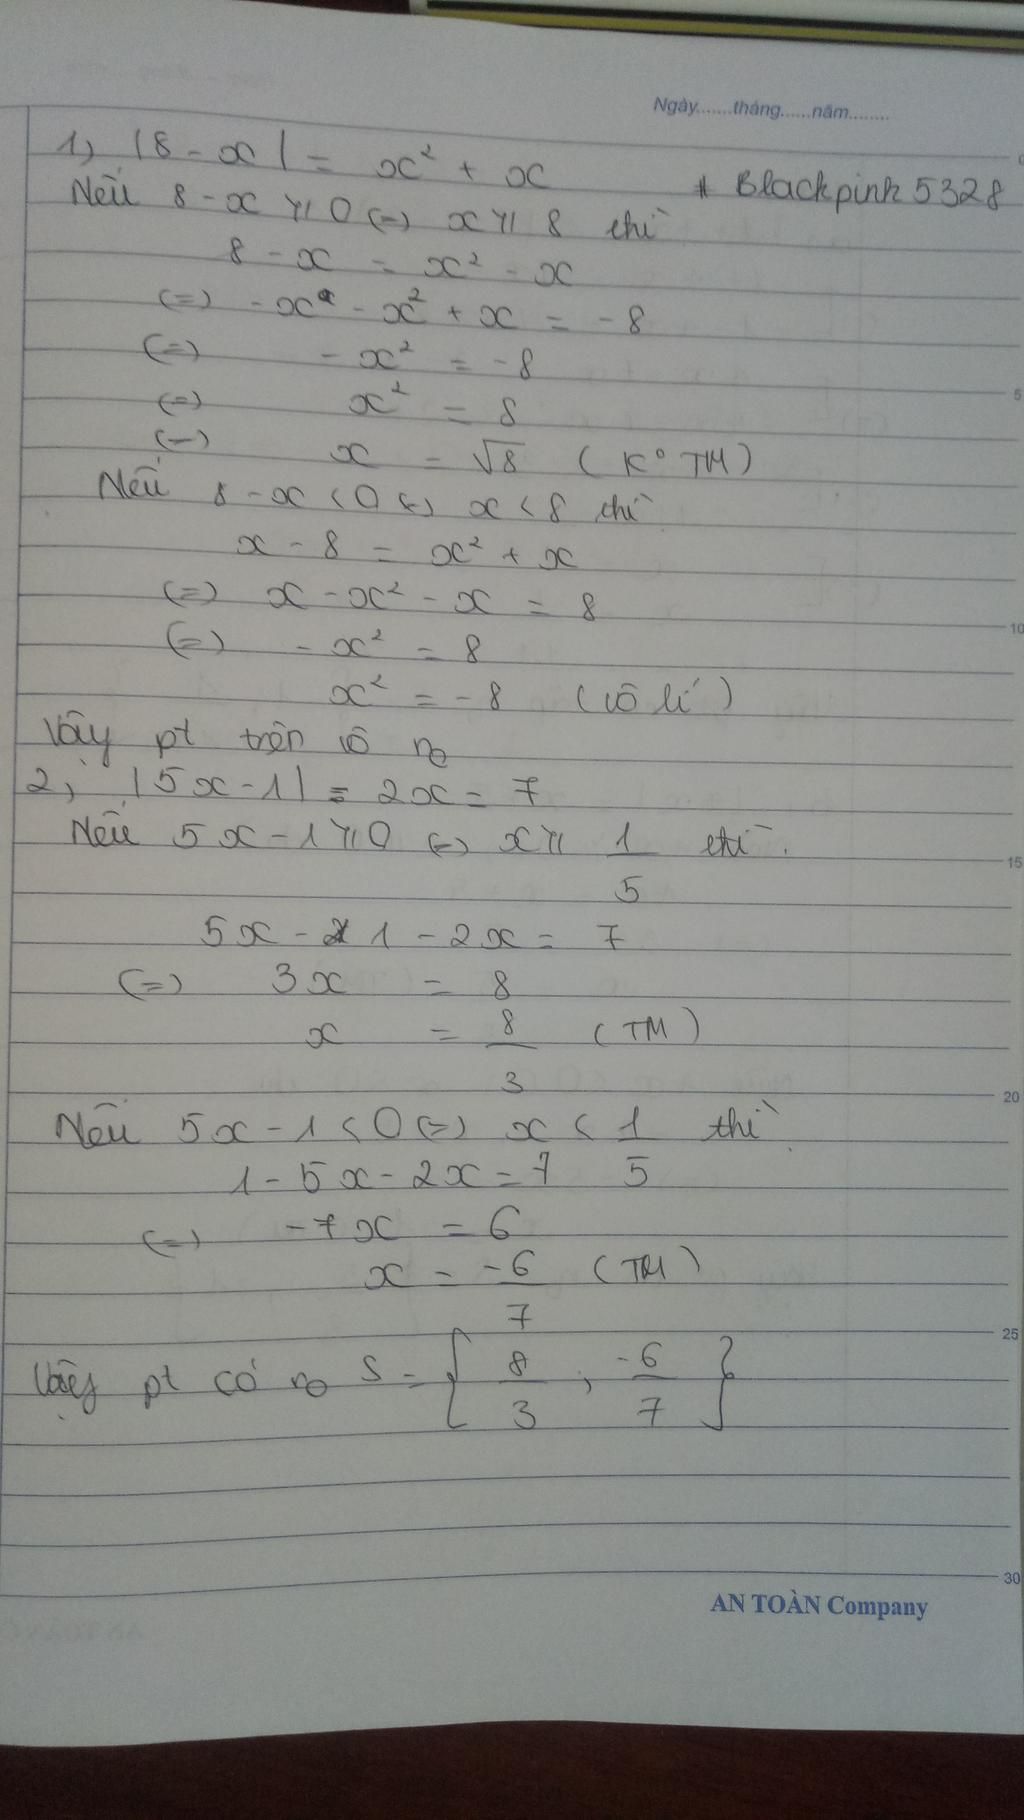 Ngày.......tháng......năm........
1) |8 - x| = x² + x
* Blackpink5328
Nếu 8 - x ≥ 0 (=) x ≥ 8 thì
8 - x = x² - x
(=) - x - x² + x = -8
(=) - x² = -8
(=) x² = 8
(=) x = √8 (K° TM)
Nếu 8 - x < 0 (=) x < 8 thì
x - 8 = x² + x
(=) x - x² - x = 8
(=) - x² = 8
x² = -8 (vô lí)
Vậy pt trên vô no
2, |5x - 1| = 2x = 7
Nếu 5x - 1 ≥ 0 (=) x ≥ 1/5 thì
5x - 1 - 2x = 7
(=) 3x = 8
x = 8/3 (TM)
Nếu 5x - 1 < 0 (=) x < 1/5 thì
1 - 5x - 2x = 7
(=) -7x = 6
x = -6/7 (TM)
Vậy pt có no S = { 8/3 ; -6/7 }
5
10
15
20
25
30
AN TOÀN Company